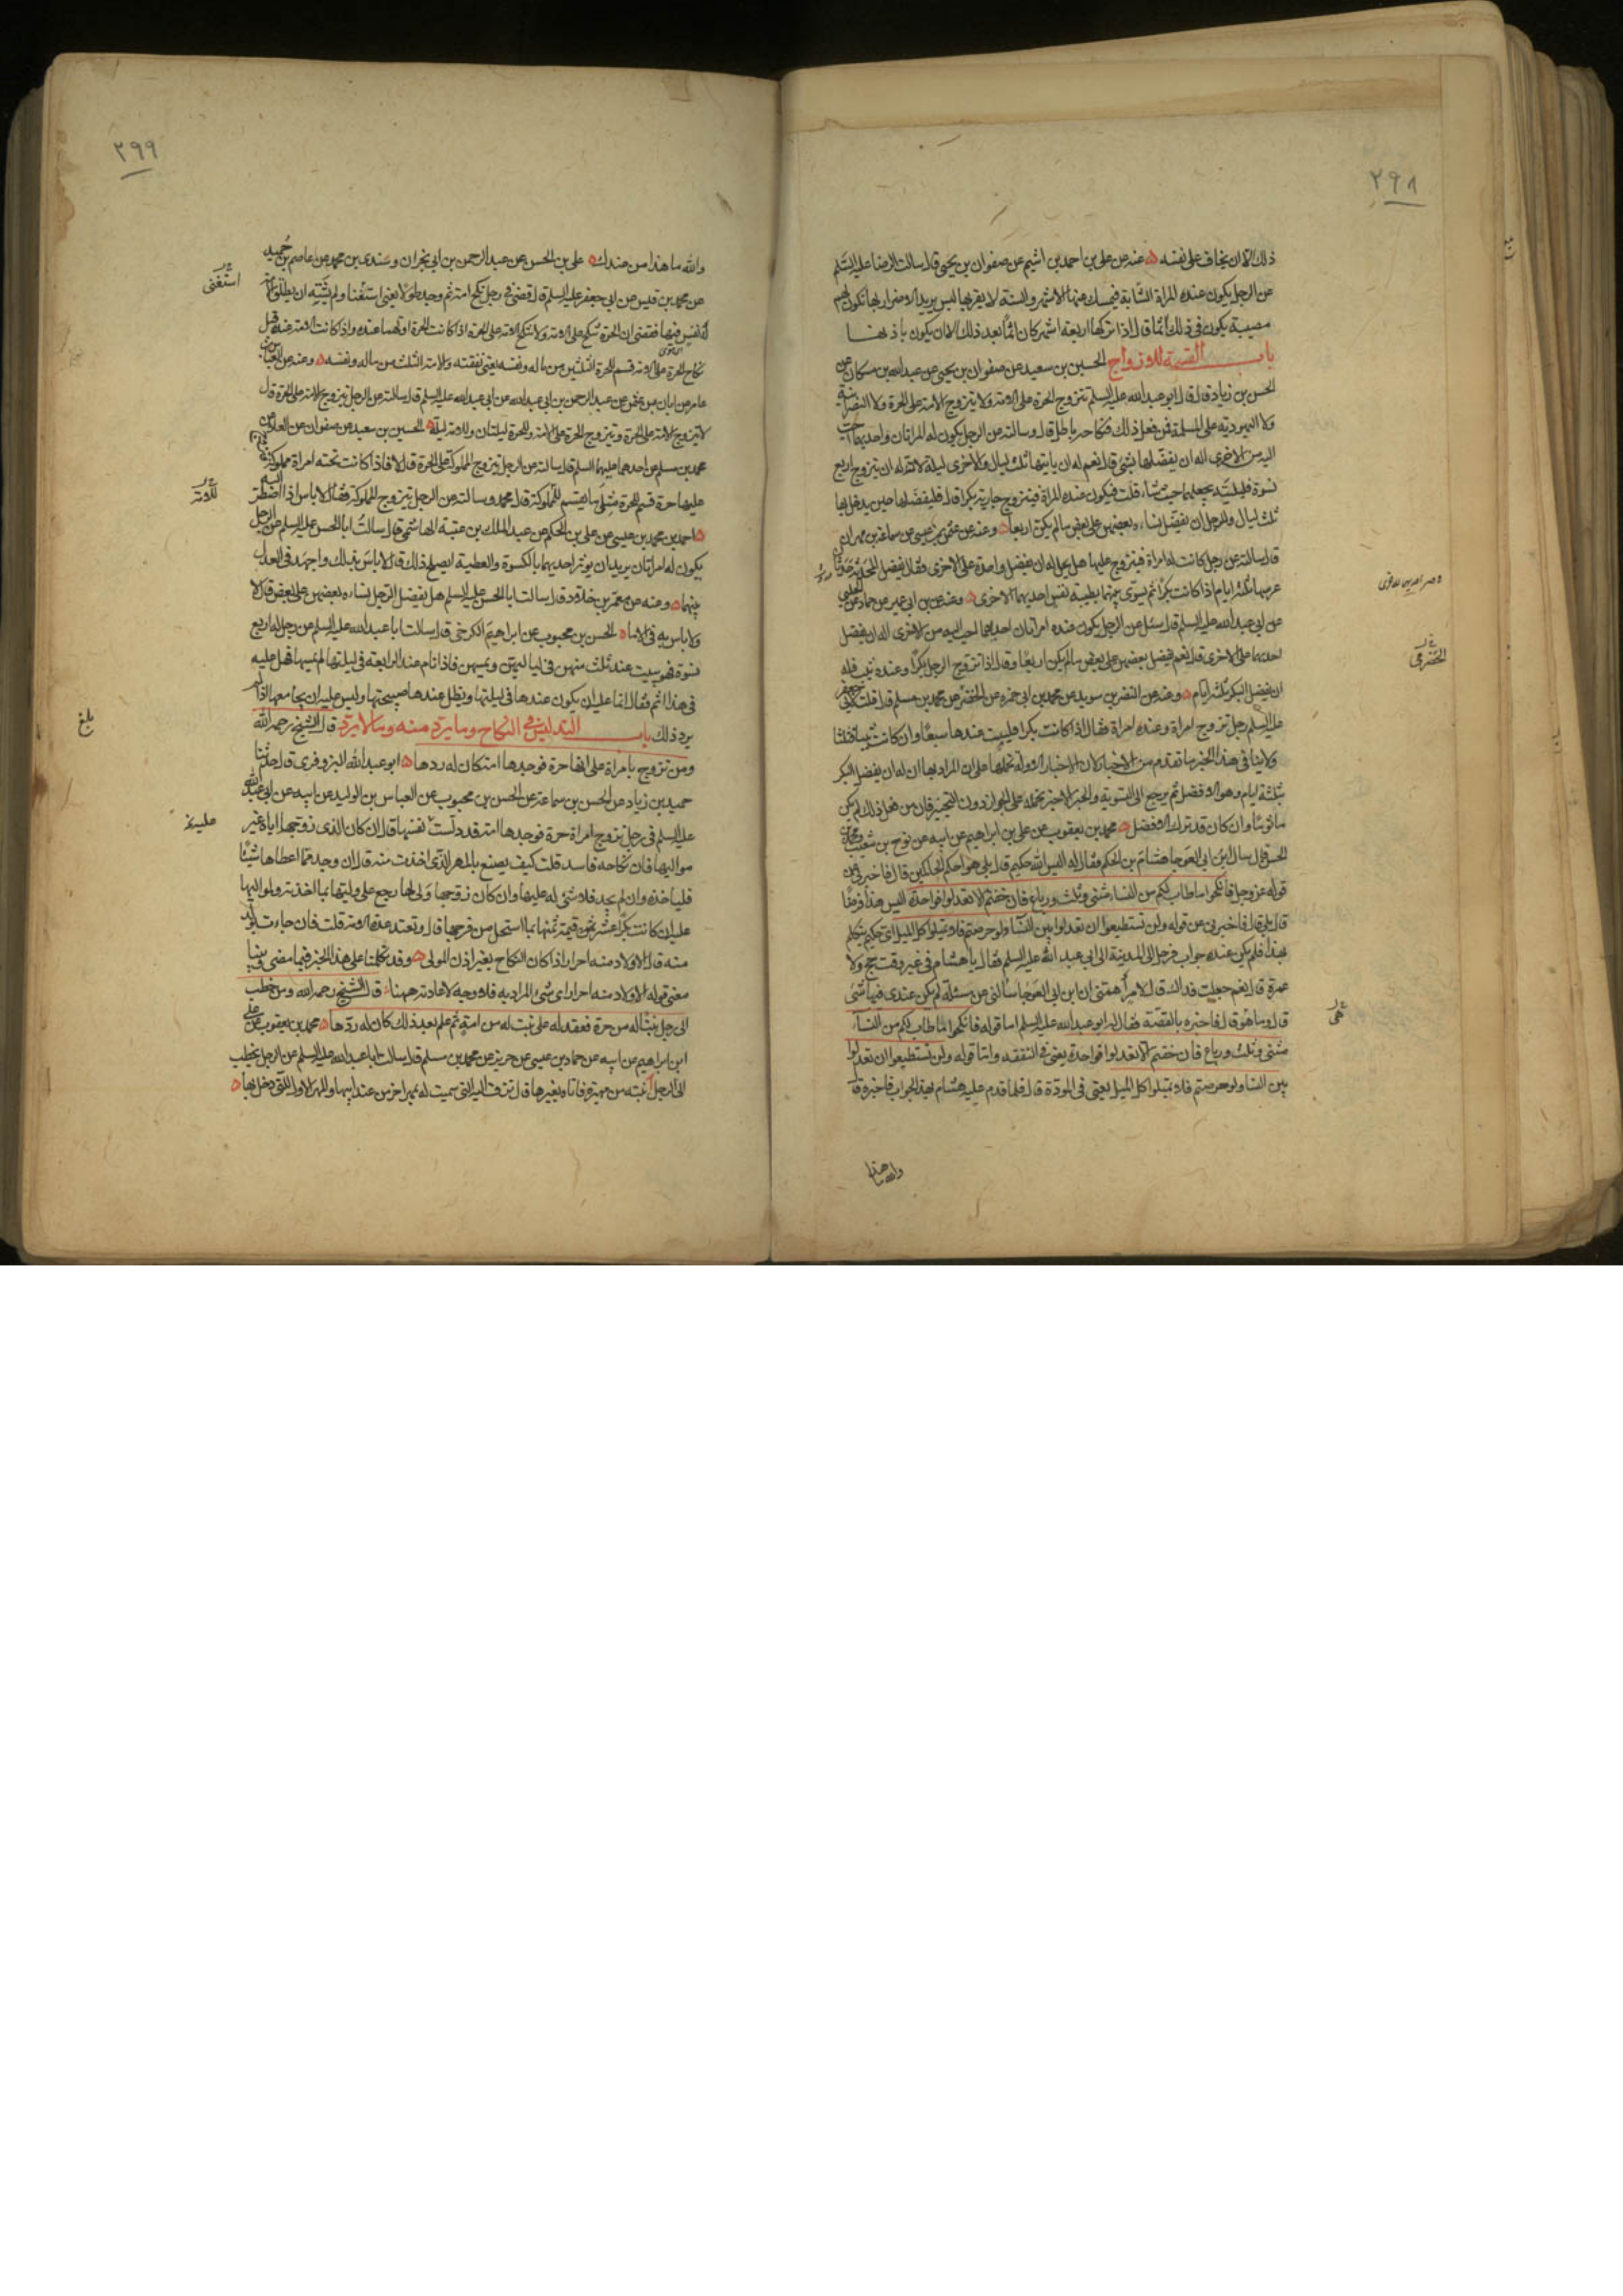 ٢٩٨
ذلك الا ان يخاف على نفسه عنه عن علي بن احمد بن اشيم عن صفوان بن يحيى قال سالت الرضا عليه السلم
عن الرجل يكون عنده المراة الشابة فيمسك عنها الاشهر والسنة لا يقربها ليس يريد الاضرار بها يكون لهم
مصيبة يكون في ذلك اثما قال اذا تركها اربعة اشهر كان اثما بعد ذلك الا ان يكون باذنها
باب القسمة للازواج الحسين بن سعيد عن صفوان بن يحيى عن عبد الله بن مسكان عن
الحسن بن زياد قال قال ابو عبد الله عليه السلم تتزوج الحرة على الامة ولا يتزوج الامة على الحرة ولا النصرانية
ولا اليهودية على المسلمة فمن فعل ذلك فنكاحه باطل قال وسالته عن الرجل يكون له المراتان واحديهما احب
اليه من الاخرى اله ان يفضلها بشئ قال نعم له ان ياتيها ثلث ليال والاخرى ليلة لان له ان يتزوج اربع
نسوة فليلتيه يجعلهما حيث شاء قلت فيكون عنده المراة فيتزوج جارية بكرا قال فليفضلها حين يدخل بها
ثلث ليال وللرجل ان يفضل نساءه بعضهن على بعض ما لم يكن اربعا وعنه عن عثمن بن عيسى عن سماعة بن مهران
قال سالته عن رجل كانت له امراة فيتزوج عليها هل يحل له ان يفضل واحدة على الاخرى فقال يفضل المحدثة حدثان
عرسها ثلثة ايام اذا كانت بكرا ثم يسوى بينهما بطيبة نفس احديهما الاخرى وعنه عن ابن ابي عمير عن حماد عن الحلبي
عن ابي عبد الله عليه السلم قال سئل عن الرجل يكون عنده امراتان احديهما احب اليه من الاخرى اله ان يفضل
احديهما على الاخرى قال نعم يفضل بعضهن على بعض ما لم يكن اربعا وقال اذا تزوج الرجل بكرا وعنده ثيب فله
الحضرمي
ان يفضل البكر بثلثة ايام وعنه عن النضر بن سويد عن محمد بن ابي حمزة عن الحضرمي عن محمد بن مسلم قال قلت لابي جعفر
عليه السلم رجل تزوج امراة وعنده امراة فقال اذا كانت بكرا فليبيت عندها سبعا وان كانت ثيبا فثلثا
ولا ينافي هذا الخبر ما تقدم من الاخبار لان الاخبار الاولة نحملها على ان المراد بها ان له ان يفضل البكر
بثلثة ايام وهو الافضل ثم يرجع الى التسوية والخبر الاخير نحمله على الجواز دون التخيير فان من فعل ذلك لم يكن
ماثوما وان كان قد ترك الافضل محمد بن يعقوب عن علي بن ابراهيم عن ابيه عن نوح بن شعيب ومحمد بن
الحسن قال سال ابن ابي العوجا هشام بن الحكم فقال له اليس الله حكيم قال بلى هو احكم الحاكمين قال فاخبرني عن
قوله عز وجل فانكحوا ما طاب لكم من النساء مثنى وثلث ورباع فان خفتم الا تعدلوا فواحدة اليس هذا فرضا
قال بلى قال فاخبرني عن قوله ولن تستطيعوا ان تعدلوا بين النسا ولو حرصتم فلا تميلوا كل الميل اي حكيم يتكلم
بهذا فلم يكن عنده جواب فرحل الى المدينة الى ابي عبد الله عليه السلم فقال يا هشام في غير وقت حج ولا
عمرة قال نعم جعلت فداك قال لامر اهمني ان ابن ابي العوجا سالني عن مسئلة لم يكن عندي فيها شئ
قال وما هو قال فاخبره بالقصة فقال له ابو عبد الله عليه السلم اما قوله فانكحوا ما طاب لكم من النسآء
هي
مثنى وثلث ورباع فان خفتم الا تعدلوا فواحدة يعني في النفقة واما قوله ولن تستطيعوا ان تعدلوا
بين النسا ولو حرصتم فلا تميلوا كل الميل يعني في المودة قال فلما قدم عليه هشام بهذا الجواب فاخبره قال
والله ما هذا
٢٩٩
والله ما هذا من عندك علي بن الحسن عن عبد الرحمن بن ابي نجران وسندي بن محمد عن عاصم بن حميد
استغنى
عن محمد بن قيس عن ابي جعفر عليه السلم قال قضى في رجل نكح امة ثم وجد طولا يعني استغنا ولم يشته ان يطلق الامة
له نفس فيها فقضى ان الحرة تنكح على الامة ولا تنكح الامة على الحرة اذا كانت الحرة اولهما عنده واذا كانت الامة عنده قبل
نكاح الحرة على الامة قسم للحرة الثلثين من ماله ونفسه يعني نفقته وللامة الثلث من ماله ونفسه وعنه عن العباس بن
عامر عن ابان بن عثمن عن عبد الرحمن بن ابي عبد الله عن ابي عبد الله عليه السلم قال سالته عن الرجل يتزوج الامة على الحرة قال
لا يتزوج الامة على الحرة ويتزوج الحرة على الامة وللحرة ليلتان وللامة ليلة الحسين بن سعيد عن صفوان عن العلا عن
محمد بن مسلم عن احدهما عليهما السلم قال سالته عن الرجل يتزوج المملوكة على الحرة قال لا فاذا كانت تحته امراة مملوكة فتزوج
للامة
عليها حرة قسم للحرة مثلي ما يقسم للمملوكة قال محمد وسالته عن الرجل يتزوج المملوكة فقال لا باس اذا اضطر اليه
احمد بن محمد بن عيسى عن علي بن الحكم عن عبد الملك بن عتبة الهاشمي قال سالت ابا الحسن عليه السلم عن الرجل
يكون له امراتان يريد ان يوثر احديهما بالكسوة والعطية ايصلح ذلك قال لا باس بذلك واجهد في العدل
بينهما وعنه عن معمر بن خلاد قال سالت ابا الحسن عليه السلم هل يفضل الرجل نساءه بعضهن على بعض قال لا
ولا باس به في الاما الحسن بن محبوب عن ابراهيم الكرخي قال سالت ابا عبد الله عليه السلم عن رجل له اربع
نسوة فهو يبيت عند ثلث منهن في لياليهن ويمسهن فاذا نام عند الرابعة في ليلتها لم يمسها فهل عليه
في هذا اثم فقال انما عليه ان يكون عندها في ليلتها ويظل عندها صبيحتها وليس عليه ان يجامعها اذا لم
بلغ
يرد ذلك باب التدليس في النكاح وما يرد منه وما لا يرد قال الشيخ رحمه الله
ومن تزوج بامراة على انها حرة فوجدها امة كان له ردها ابو عبد الله البزوفري قال حدثنا
حميد بن زياد عن الحسن بن سماعة عن الحسن بن محبوب عن العباس بن الوليد عن ابيه عن ابي عبد الله
عليه السلم في رجل تزوج امراة حرة فوجدها امة قد دلست نفسها قال ان كان الذي زوجها اياه غير
مواليها فان نكاحه فاسد قلت كيف يصنع بالمهر الذي اخذت منه قال ان وجد مما اعطاها شيئا
فلياخذه وان لم يجد فلا شئ له عليها وان كان زوجها ولي لها رجع على وليها بما اخذته ولمواليها
عليه ان كانت بكرا عشر قيمة ثمنها بما استحل من فرجها قال وتعتد عدة الامة قلت فان جاءت بولد
منه قال الاولاد منه احرار اذا كان النكاح بغير اذن المولى وقد تكلمنا على هذا الخبر فيما مضى وبينا
معنى قوله الاولاد منه احرار اي شئ المراد به فلا وجه لاعادته ههنا قال الشيخ رحمه الله ومن خطب
الى رجل بنتا له من حرة فعقد له على بنت له من امة ثم علم بعد ذلك كان له ردها محمد بن يعقوب عن علي
ابن ابراهيم عن ابيه عن حماد بن عيسى عن حريز عن محمد بن مسلم قال سالت ابا عبد الله عليه السلم عن الرجل يخطب
الى الرجل ابنته من مهيرة فاتاه بغيرها قال تزف اليه التي سميت له بمهر اخر من عند ابيها والمهر الاول للتي دخل بها